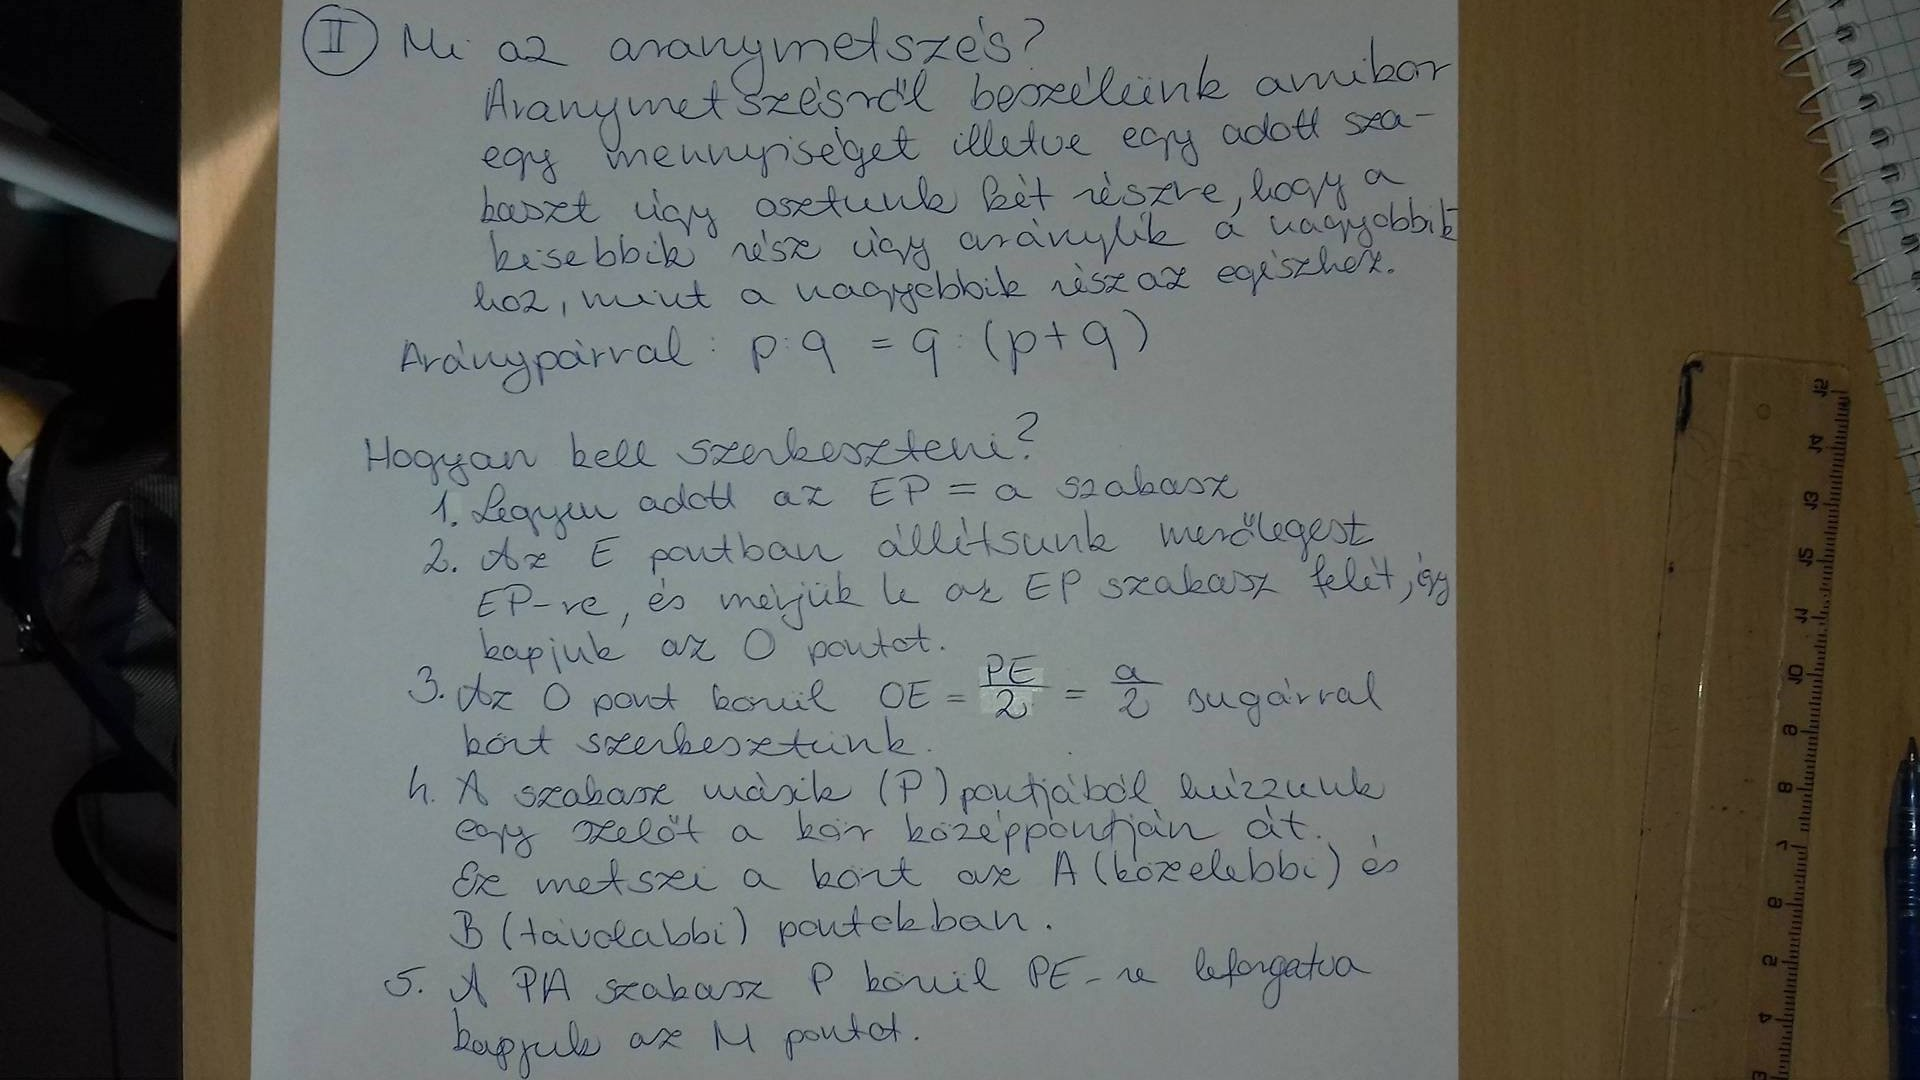 II Mi az aranymetszés?
Aranymetszésről beszélünk amikor
egy mennyiséget illetve egy adott sza-
kaszt úgy osztunk két részre, hogy a
kisebbik rész úgy aránylik a nagyobbik
hoz, mint a nagyobbik rész az egészhez.
Aránypárral: p:q = q:(p+q)
Hogyan kell szerkeszteni?
1. Legyen adott az EP = a szakasz
2. Az E pontban állítsunk merőlegest
EP-re, és mérjük le az EP szakasz felét, így
kapjuk az O pontot.
3. Az O pont körül OE = PE/2 = a/2 sugárral
kört szerkesztünk.
4. A szakasz másik (P) pontjából húzzunk
egy szelőt a kör középpontján át.
Ez metszi a kört az A (közelebbi) és
B (távolabbi) pontokban.
5. A PA szakasz P körül PE-re leforgatva
kapjuk az M pontot.
15
14
13
12
11
10
9
8
7
6
5
4
3